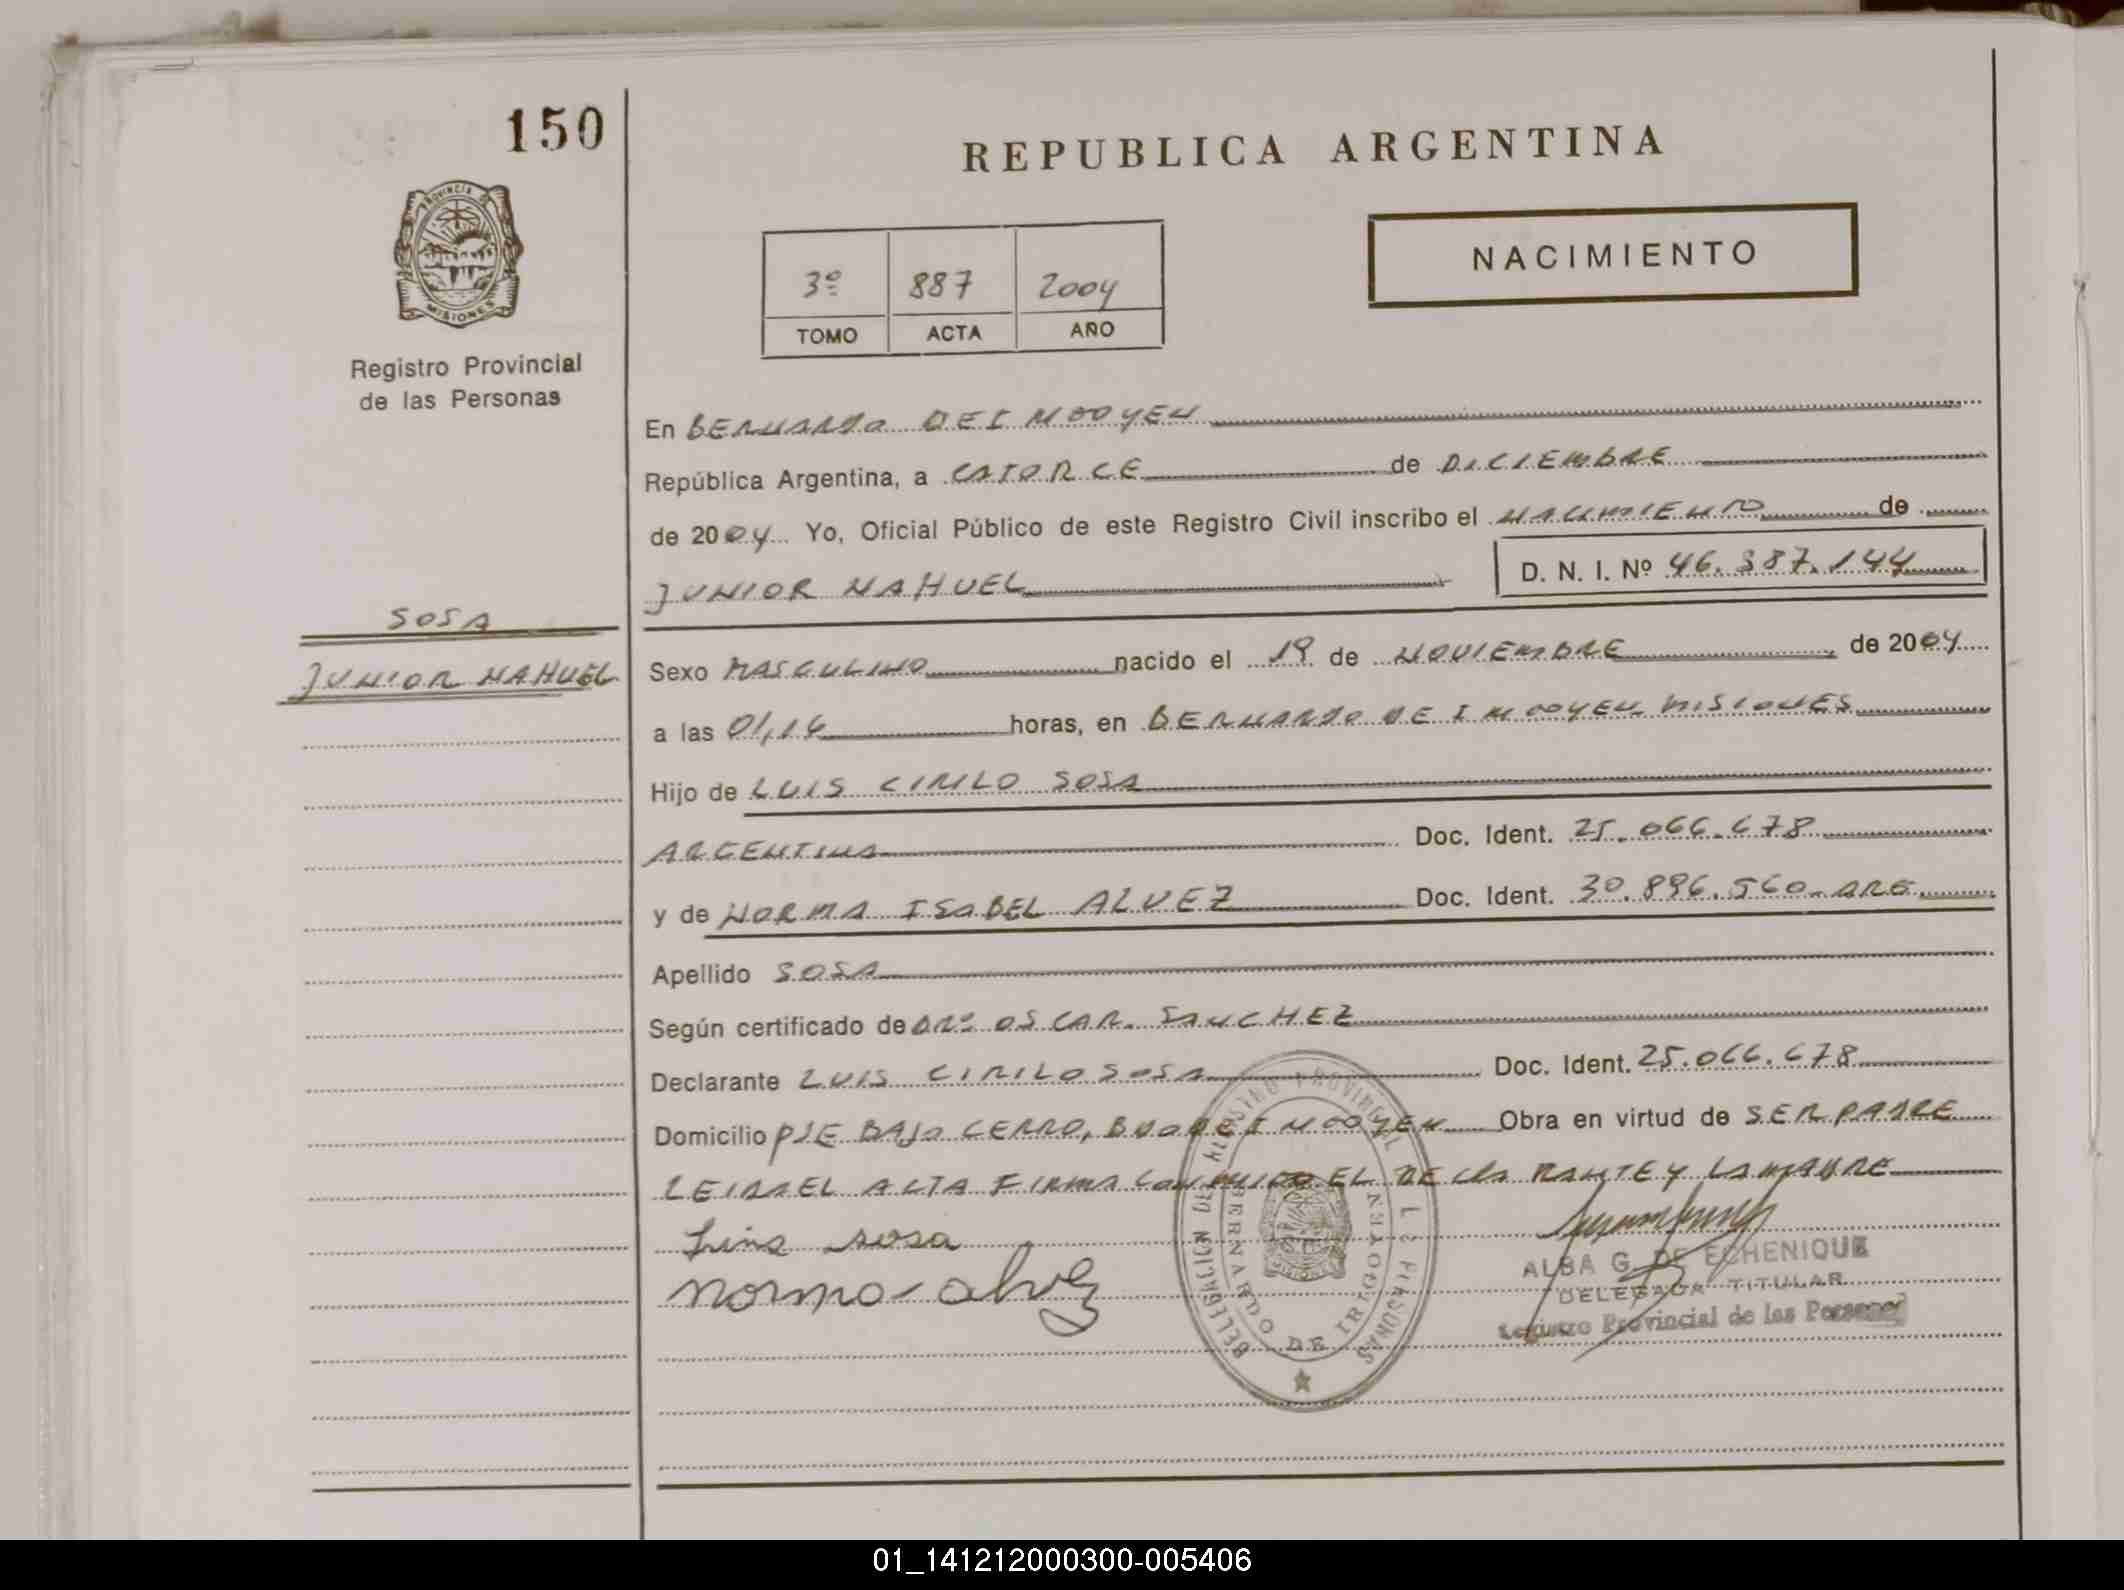 150
REPUBLICA ARGENTINA
PROVINCIA DE
MISIONES
Registro Provincial
de las Personas
NACIMIENTO
3º 887 2004
TOMO ACTA AÑO
En BERNARDO DE IRIGOYEN
República Argentina, a CATORCE de DICIEMBRE
de 2004 Yo, Oficial Público de este Registro Civil inscribo el NACIMIENTO de
JUNIOR NAHUEL D. N. I. Nº 46.387.144
SOSA
JUNIOR NAHUEL
Sexo MASCULINO nacido el 19 de NOVIEMBRE de 2004
a las 01,16 horas, en BERNARDO DE IRIGOYEN MISIONES
Hijo de LUIS CIRILO SOSA
ARGENTINA Doc. Ident. 25.066.678
y de NORMA ISABEL ALVEZ Doc. Ident. 30.896.560 ARG
Apellido SOSA
Según certificado de DRº OSCAR SANCHEZ
Declarante LUIS CIRILO SOSA Doc. Ident. 25.066.678
Domicilio PJE BAJO CERRO, BDO DE IRIGOYEN Obra en virtud de SER PADRE
LEIDA EL ACTA FIRMA CONMIGO EL DECLARANTE Y LA MADRE
Luis sosa
Norma alvez
DELEGACION DEL REGISTRO PROVINCIAL DE LAS PERSONAS
BERNARDO DE IRIGOYEN
ALBA G. DE ECHENIQUE
DELEGADA TITULAR
Registro Provincial de las Personas
01_141212000300-005406